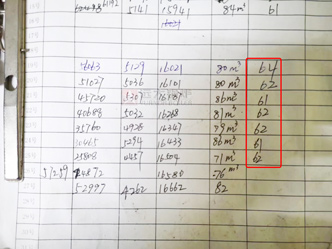 5141 15941 84m³ 61
5129 16021 80m³ 62
51027 5036 16101 80m³ 62
45720 5307 16187 86m³ 61
40688 5032 16268 81m³ 62
35760 4928 16347 79m³ 62
30465 5294 16433 86m³ 61
25808 4457 16504 71m³ 62
57259 24872 16580 76m³
52997 4262 16662 82